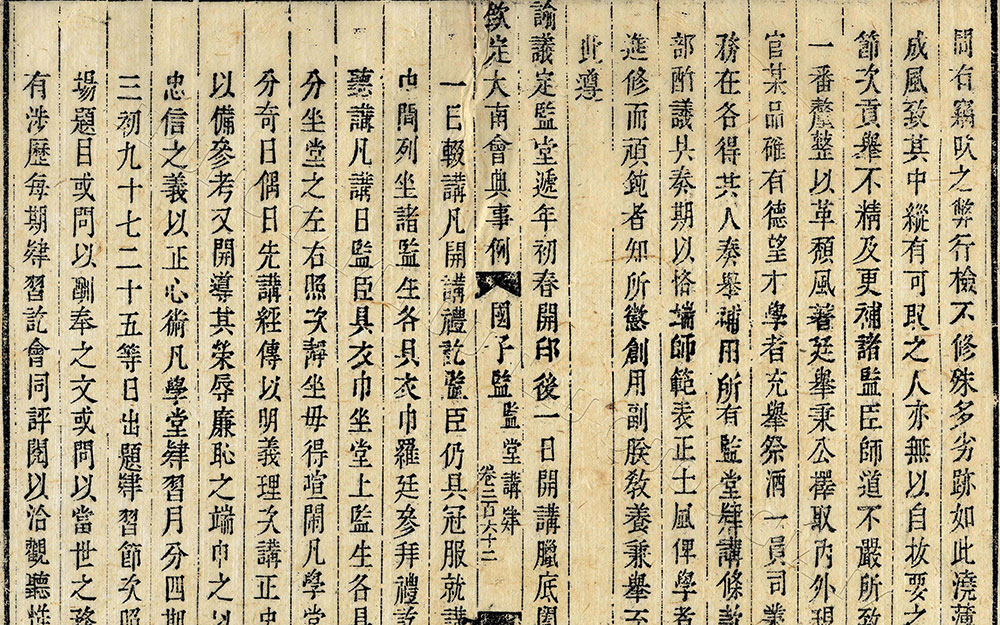 間有竊吹之弊行檢不修殊多劣跡如此澆薄
成風致其中縱有可取之人亦無以自拔要之
節次貢舉不精及更補諸監臣師道不嚴所致
一番釐整以革頹風著廷舉秉公擇取內外現
官某品確有德望才學者充舉祭酒一員司業
務在各得其人奏舉補用所有監堂肄講條款
部酌議具奏期以恪端師範表正士風俾學者
進修而頑鈍者知所懲創用副朕教養兼舉至
此遵
諭議定監堂遞年初春開印後一日開講臘底
欽定大南會典事例 國子監 監堂講肄 卷二百六十二
一曰輟講凡開講禮訖監臣仍具冠服就講
中間列坐諸監生各具衣巾羅廷參拜禮訖
聽講凡講日監臣具衣巾坐堂上監生各具
分坐堂之左右照次靜坐毋得喧鬧凡學堂
分奇日偶日先講經傳以明義理次講正史
以備參考又開導其榮辱廉恥之端巾之以
忠信之義以正心術凡學堂肄習月分四期
三初九十七二十五等日出題肄習節次照
場題目或問以酬奉之文或問以當世之務
有涉歷每期肄習訖會同評閱以洽觀聽